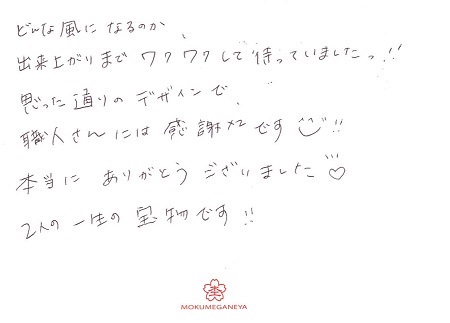 どんな風になるのか、
出来上がりまでワクワクして待っていましたっ!!
思った通りのデザインで、
職人さんには感謝×2です!!
本当にありがとうございました♡
2人の一生の宝物です!!
杢
MOKUMEGANEYA